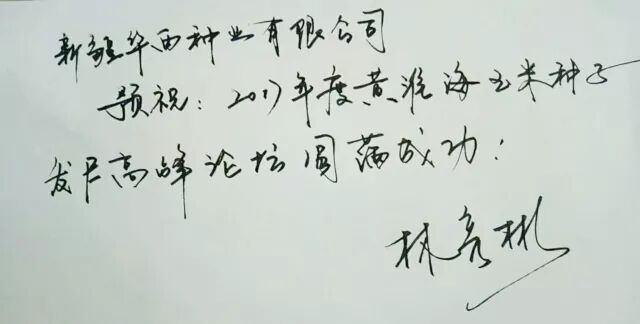 新疆华西种业有限公司
预祝：2017年度黄淮海玉米种子
发展高峰论坛圆满成功！
林彦彬